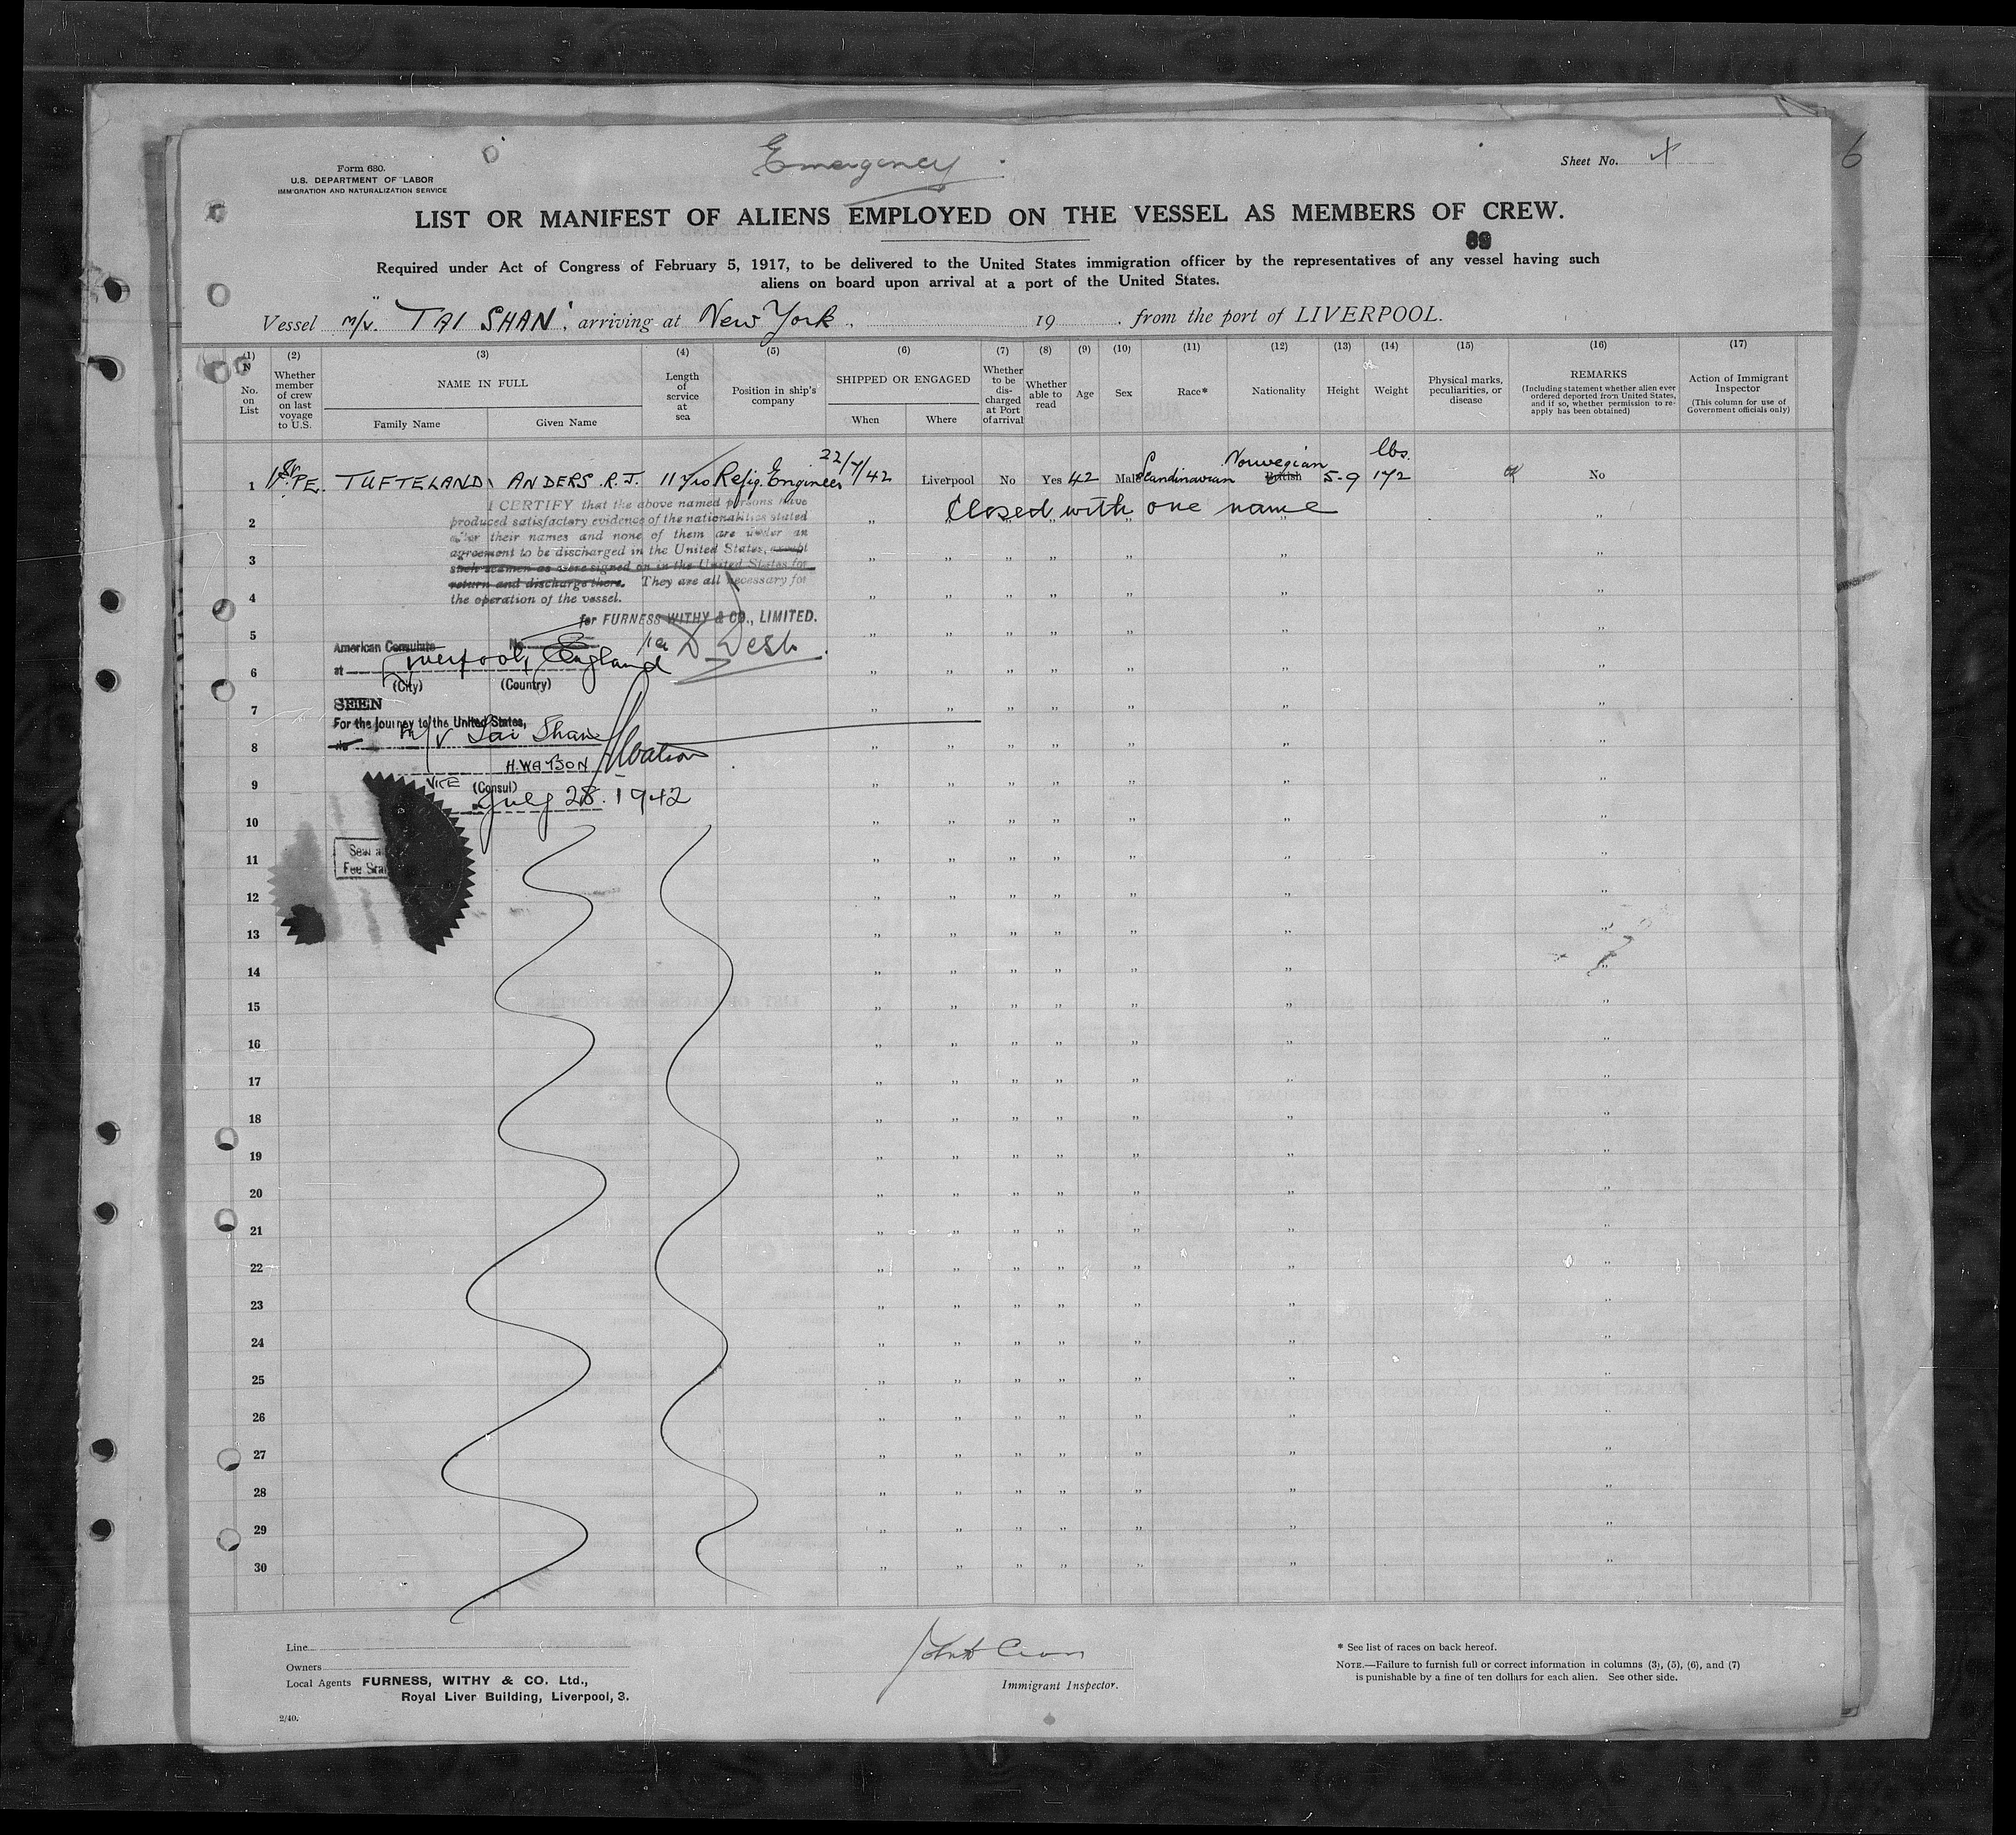 Emergency
Form 680.
U.S. DEPARTMENT OF LABOR
IMMIGRATION AND NATURALIZATION SERVICE
Sheet No.
6
LIST OR MANIFEST OF ALIENS EMPLOYED ON THE VESSEL AS MEMBERS OF CREW.
Required under Act of Congress of February 5, 1917, to be delivered to the United States immigration officer by the representatives of any vessel having such
aliens on board upon arrival at a port of the United States.
Vessel m/v. "TAI SHAN", arriving at New York, 19 , from the port of LIVERPOOL.
(1) (2) (3) (4) (5) (6) (7) (8) (9) (10) (11) (12) (13) (14) (15) (16) (17)
No. on List
Whether member of crew on last voyage to U.S.
NAME IN FULL
Family Name Given Name
Length of service at sea
Position in ship's company
SHIPPED OR ENGAGED
When Where
Whether to be discharged at Port of arrival
Whether able to read
Age
Sex
Race*
Nationality
Height
Weight
Physical marks, peculiarities, or disease
REMARKS
(Including statement whether alien ever ordered deported from United States, and if so, whether permission to re-apply has been obtained)
Action of Immigrant Inspector
(This column for use of Government officials only)
lbs.
1 TUFTELAND ANDERS. R.J. 11 yrs Refig. Engineer 22/7/42 Liverpool No Yes 42 Male Scandinavian Norwegian British 5-9 172 No
Closed with one name
I CERTIFY that the above named persons have
produced satisfactory evidence of the nationalities stated
after their names and none of them are under an
agreement to be discharged in the United States, except
such seamen as were signed on in the United States for
return and discharge there. They are all necessary for
the operation of the vessel.
for FURNESS WITHY & CO., LIMITED.
American Consulate No
at Liverpool, England
(City) (Country)
SEEN
For the journey to the United States,
m/v Tai Shan
H. WATSON HWatson
VICE (Consul)
July 28. 1942
2
3
4
5
6
7
8
9
10
11
12
13
14
15
16
17
18
19
20
21
22
23
24
25
26
27
28
29
30
Line
Owners
Local Agents FURNESS, WITHY & CO. Ltd.,
Royal Liver Building, Liverpool, 3.
2/40.
Immigrant Inspector.
* See list of races on back hereof.
NOTE.—Failure to furnish full or correct information in columns (3), (5), (6), and (7)
is punishable by a fine of ten dollars for each alien. See other side.